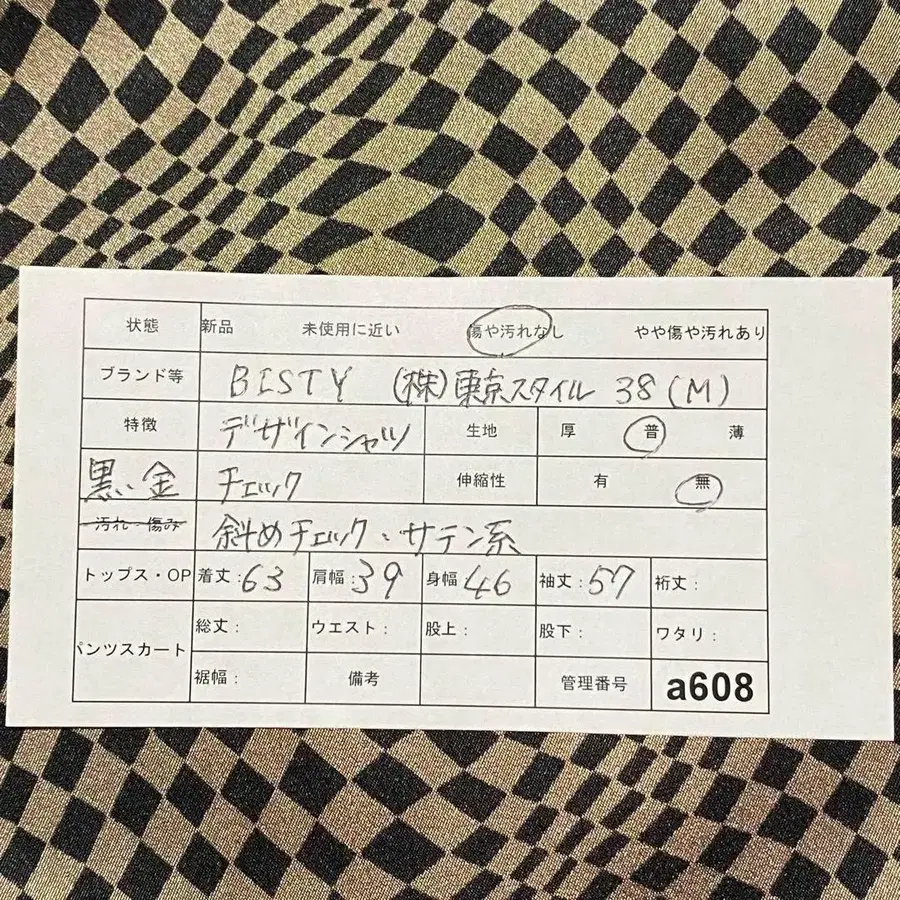 状態 新品 未使用に近い 傷や汚れなし やや傷や汚れあり
ブランド等 BISTY (株)東京スタイル 38(M)
特徴 デザインシャツ 生地 厚 普 薄
黒、金 チェック 伸縮性 有 無
汚れ・傷み 斜めチェック、サテン系
トップス・OP 着丈:63 肩幅:39 身幅:46 袖丈:57 裄丈:
パンツスカート 総丈: ウエスト: 股上: 股下: ワタリ:
裾幅: 備考 管理番号 a608